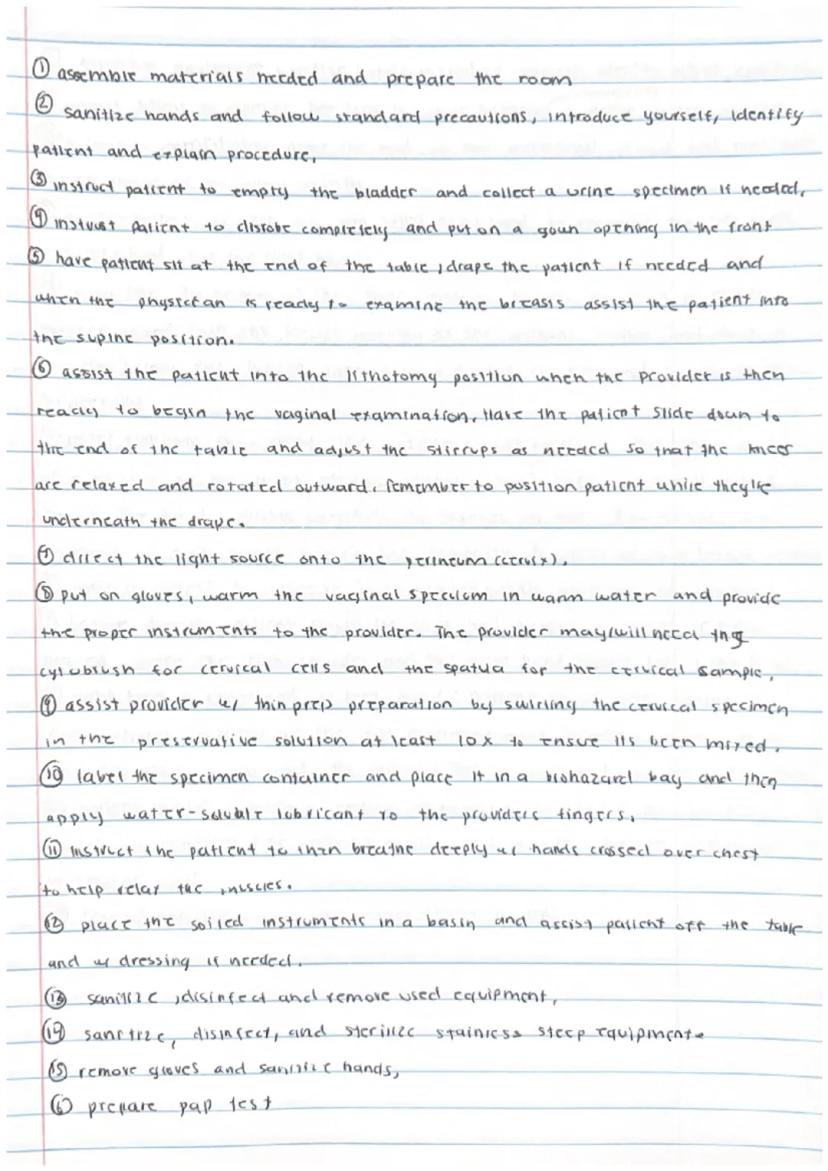 ① assemble materials needed and prepare the room
② sanitize hands and follow standard precautions, introduce yourself, identify
patient and explain procedure.
③ instruct patient to empty the bladder and collect a urine specimen if needed.
④ instruct patient to disrobe completely and put on a gown opening in the front
⑤ have patient sit at the end of the table, drape the patient if needed and
when the physician is ready to examine the breasts assist the patient into
the supine position.
⑥ assist the patient into the lithotomy position when the provider is then
ready to begin the vaginal examination. Have the patient slide down to
the end of the table and adjust the stirrups as needed so that the knees
are relaxed and rotated outward. remember to position patient while they're
underneath the drape.
⑦ direct the light source onto the perineum (cervix).
⑧ put on gloves, warm the vaginal speculum in warm water and provide
the proper instruments to the provider. The provider may/will need the
cytobrush for cervical cells and the spatula for the cervical sample.
⑨ assist provider w/ thin prep preparation by swirling the cervical specimen
in the preservative solution at least 10x to ensure its been mixed.
⑩ label the specimen container and place it in a biohazard bag and then
apply water-soluble lubricant to the providers fingers.
⑪ instruct the patient to then breathe deeply w/ hands crossed over chest
to help relax the muscles.
⑫ place the soiled instruments in a basin and assist patient off the table
and w/ dressing if needed.
⑬ sanitize, disinfect and remove used equipment,
⑭ sanitize, disinfect, and sterilize stainless steep equipment.
⑮ remove gloves and sanitize hands,
⑯ prepare pap test